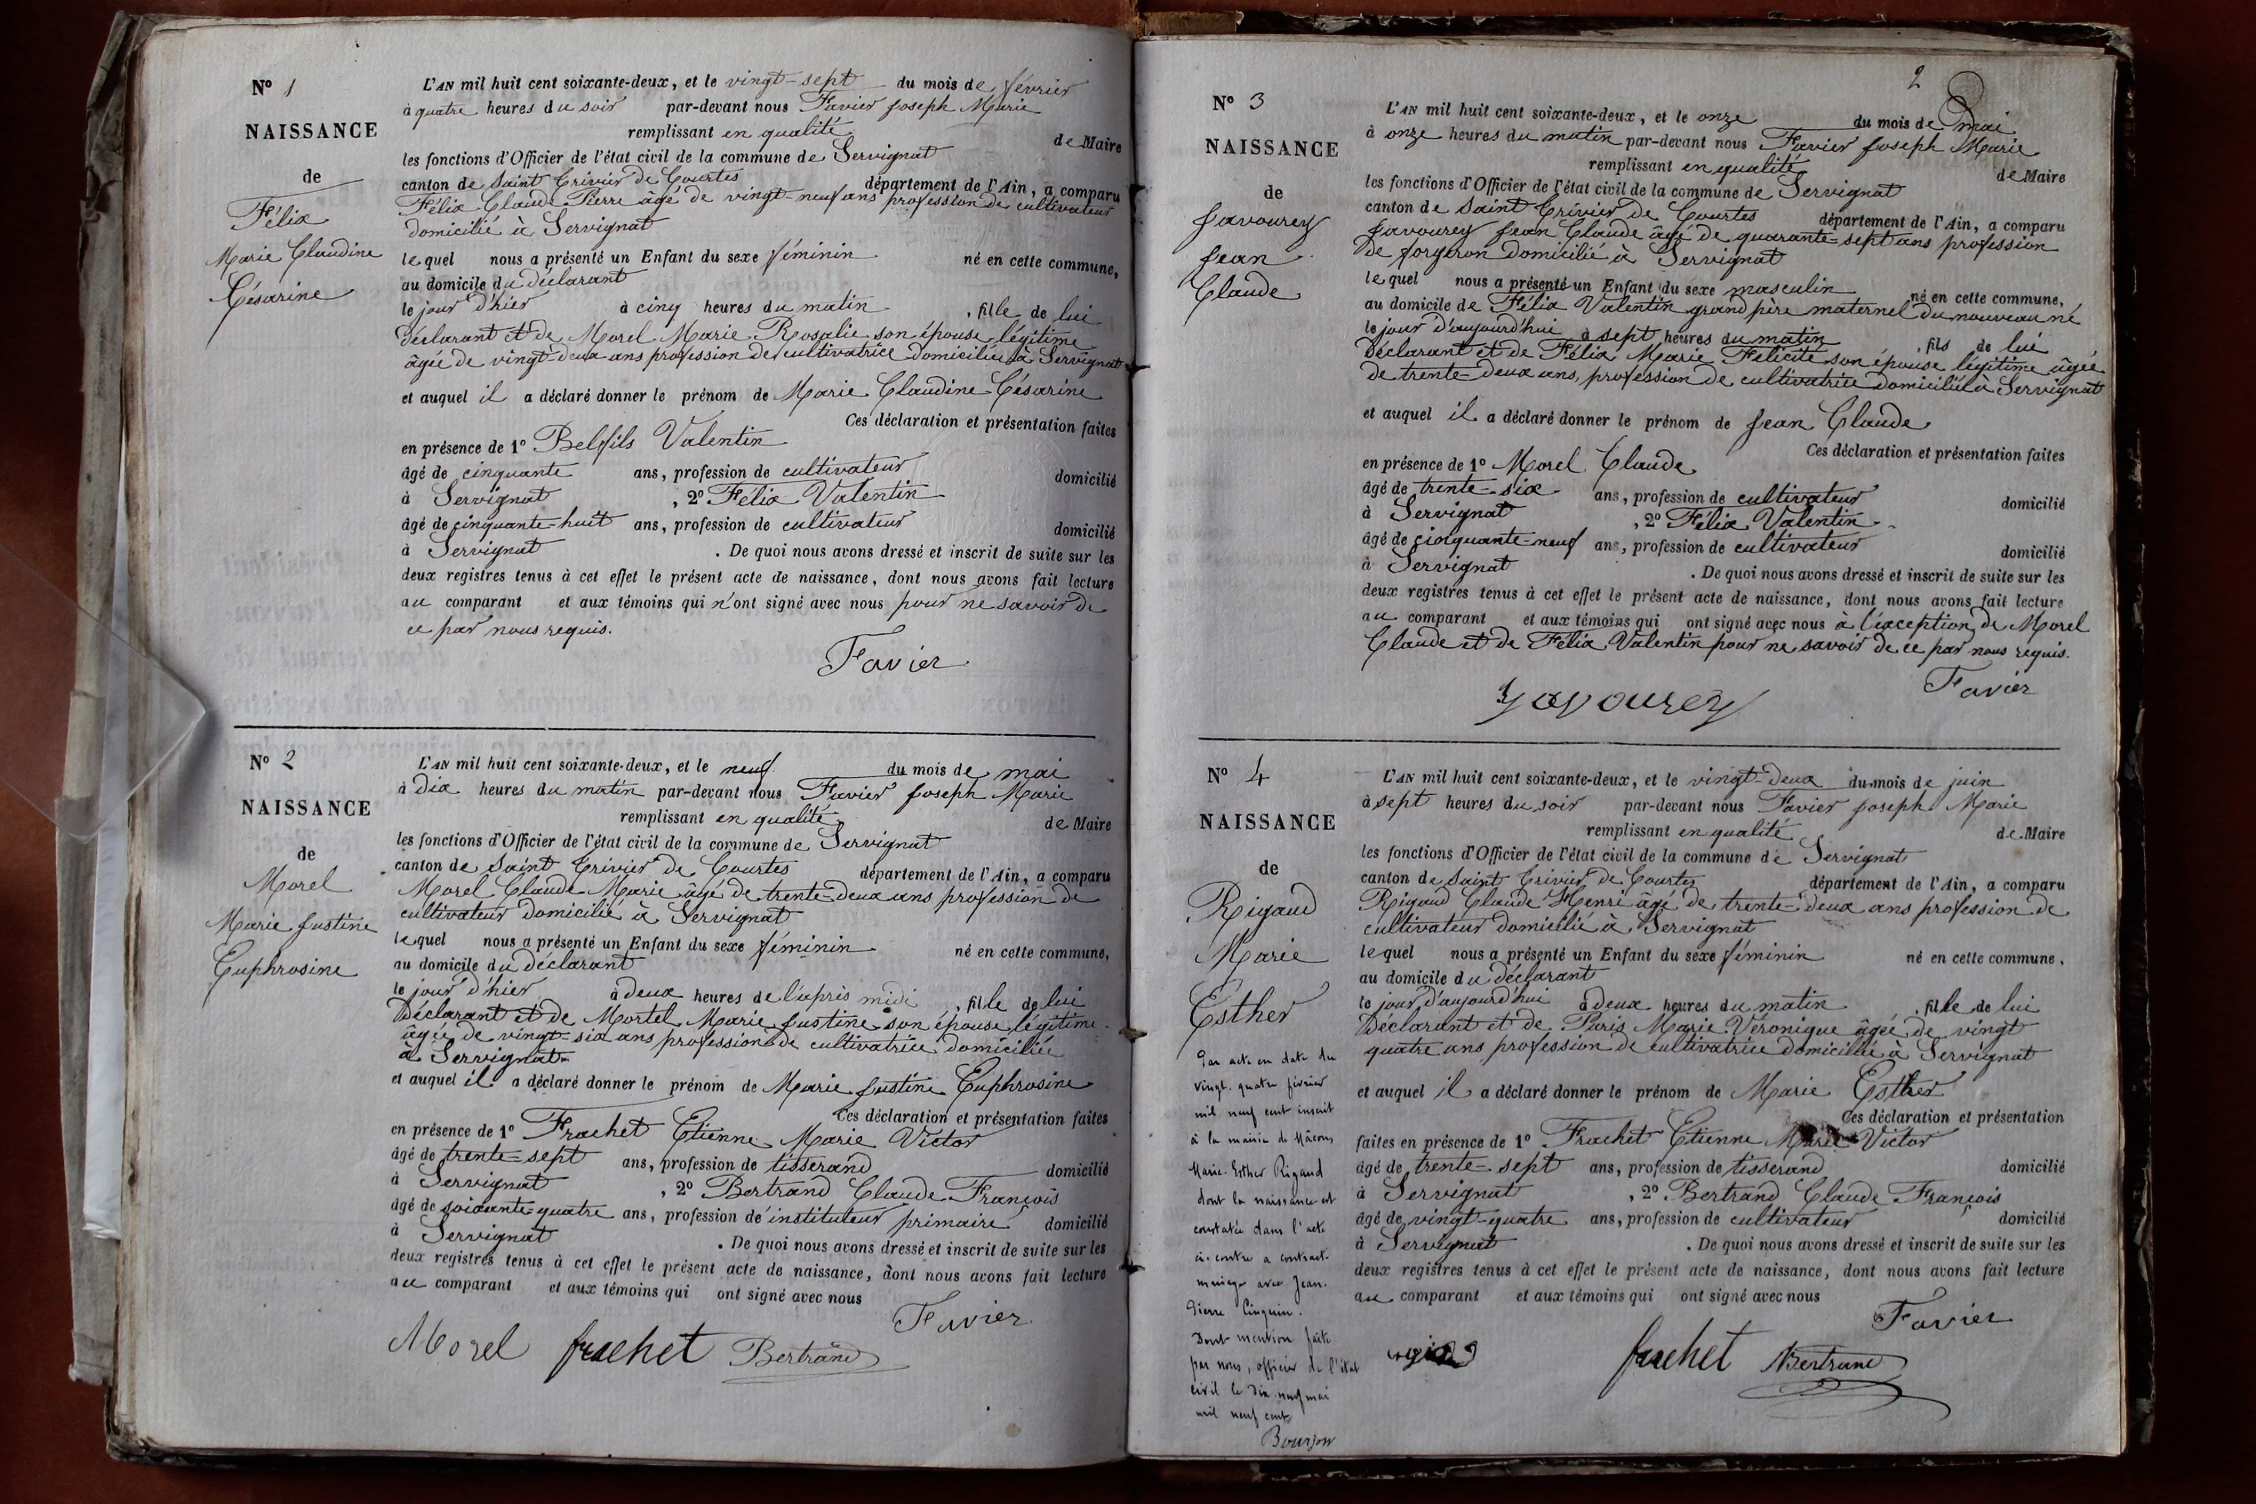 N° 1
NAISSANCE
de
Félix
Marie Claudine
Césarine
L'AN mil huit cent soixante-deux, et le vingt-sept du mois de février
à quatre heures du soir par-devant nous Favier Joseph Marie
remplissant en qualité de Maire
les fonctions d'Officier de l'état civil de la commune de Servignat
canton de Saint Trivier de Courtes département de l'Ain, a comparu
Félix Claude Pierre âgé de vingt-neuf ans profession de cultivateur
domicilié à Servignat
lequel nous a présenté un Enfant du sexe féminin né en cette commune,
au domicile du déclarant
le jour d'hier à cinq heures du matin, fille de lui
déclarant et de Morel Marie Rosalie son épouse légitime
âgée de vingt-deux ans profession de cultivatrice domiciliée à Servignat
et auquel il a déclaré donner le prénom de Marie Claudine Césarine
Ces déclaration et présentation faites
en présence de 1° Belfils Valentin
âgé de cinquante ans, profession de cultivateur domicilié
à Servignat, 2° Félix Valentin
âgé de cinquante-huit ans, profession de cultivateur domicilié
à Servignat. De quoi nous avons dressé et inscrit de suite sur les
deux registres tenus à cet effet le présent acte de naissance, dont nous avons fait lecture
au comparant et aux témoins qui n'ont signé avec nous pour ne savoir de
ce par nous requis.
Favier
N° 2
NAISSANCE
de
Morel
Marie Justine
Euphrosine
L'AN mil huit cent soixante-deux, et le neuf du mois de mai
à dix heures du matin par-devant nous Favier Joseph Marie
remplissant en qualité de Maire
les fonctions d'Officier de l'état civil de la commune de Servignat
canton de Saint Trivier de Courtes département de l'Ain, a comparu
Morel Claude Marie âgé de trente-deux ans profession de
cultivateur domicilié à Servignat
lequel nous a présenté un Enfant du sexe féminin né en cette commune,
au domicile du déclarant
le jour d'hier à deux heures de l'après midi, fille de lui
déclarant et de Mortel Marie Justine son épouse légitime
âgée de vingt-six ans profession de cultivatrice domiciliée
à Servignat
et auquel il a déclaré donner le prénom de Marie Justine Euphrosine
Ces déclaration et présentation faites
en présence de 1° Frachet Etienne Marie Victor
âgé de trente-sept ans, profession de tisserand domicilié
à Servignat, 2° Bertrand Claude François
âgé de soixante-quatre ans, profession d'instituteur primaire domicilié
à Servignat. De quoi nous avons dressé et inscrit de suite sur les
deux registres tenus à cet effet le présent acte de naissance, dont nous avons fait lecture
au comparant et aux témoins qui ont signé avec nous
Favier
Morel frachet Bertrand
2
N° 3
NAISSANCE
de
Javourey
Jean
Claude
L'AN mil huit cent soixante-deux, et le onze du mois de mai
à onze heures du matin par-devant nous Favier Joseph Marie
remplissant en qualité de Maire
les fonctions d'Officier de l'état civil de la commune de Servignat
canton de Saint Trivier de Courtes département de l'Ain, a comparu
Javourey Jean Claude âgé de quarante-sept ans profession
de forgeron domicilié à Servignat
lequel nous a présenté un Enfant du sexe masculin né en cette commune,
au domicile de Félix Valentin grand père maternel du nouveau né
le jour d'aujourd'hui à sept heures du matin, fils de lui
déclarant et de Félix Marie Félicité son épouse légitime âgée
de trente-deux ans, profession de cultivatrice domiciliée à Servignat
et auquel il a déclaré donner le prénom de Jean Claude
Ces déclaration et présentation faites
en présence de 1° Morel Claude
âgé de trente-six ans, profession de cultivateur domicilié
à Servignat, 2° Félix Valentin
âgé de cinquante-neuf ans, profession de cultivateur domicilié
à Servignat. De quoi nous avons dressé et inscrit de suite sur les
deux registres tenus à cet effet le présent acte de naissance, dont nous avons fait lecture
au comparant et aux témoins qui ont signé avec nous à l'exception de Morel
Claude et de Félix Valentin pour ne savoir de ce par nous requis.
Favier
Javourey
N° 4
NAISSANCE
de
Rigaud
Marie
Esther
Par acte en date du
vingt-quatre février
mil neuf cent inscrit
à la mairie de Mâcon
Marie-Esther Rigaud
dont la naissance est
constatée dans l'acte
ci-contre a contracté
mariage avec Jean-
Pierre Cinquin.
Dont mention faite
par nous, officier de l'état
civil le dix-neuf mai
mil neuf cent
Bourjon
L'AN mil huit cent soixante-deux, et le vingt-deux du mois de juin
à sept heures du soir par-devant nous Favier Joseph Marie
remplissant en qualité de Maire
les fonctions d'Officier de l'état civil de la commune de Servignat
canton de Saint Trivier de Courtes département de l'Ain, a comparu
Rigaud Claude Henri âgé de trente-deux ans profession de
cultivateur domicilié à Servignat
lequel nous a présenté un Enfant du sexe féminin né en cette commune,
au domicile du déclarant
le jour d'aujourd'hui à deux heures du matin, fille de lui
déclarant et de Paris Marie Véronique âgée de vingt
quatre ans profession de cultivatrice domiciliée à Servignat
et auquel il a déclaré donner le prénom de Marie Esther
Ces déclaration et présentation
faites en présence de 1° Frachet Etienne Marie Victor
âgé de trente-sept ans, profession de tisserand domicilié
à Servignat, 2° Bertrand Claude François
âgé de vingt-quatre ans, profession de cultivateur domicilié
à Servignat. De quoi nous avons dressé et inscrit de suite sur les
deux registres tenus à cet effet le présent acte de naissance, dont nous avons fait lecture
au comparant et aux témoins qui ont signé avec nous
Favier
frachet Bertrand